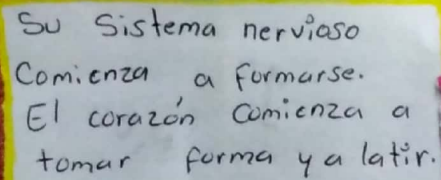 Su Sistema nervioso
Comienza a formarse.
El corazón comienza a
tomar forma y a latir.